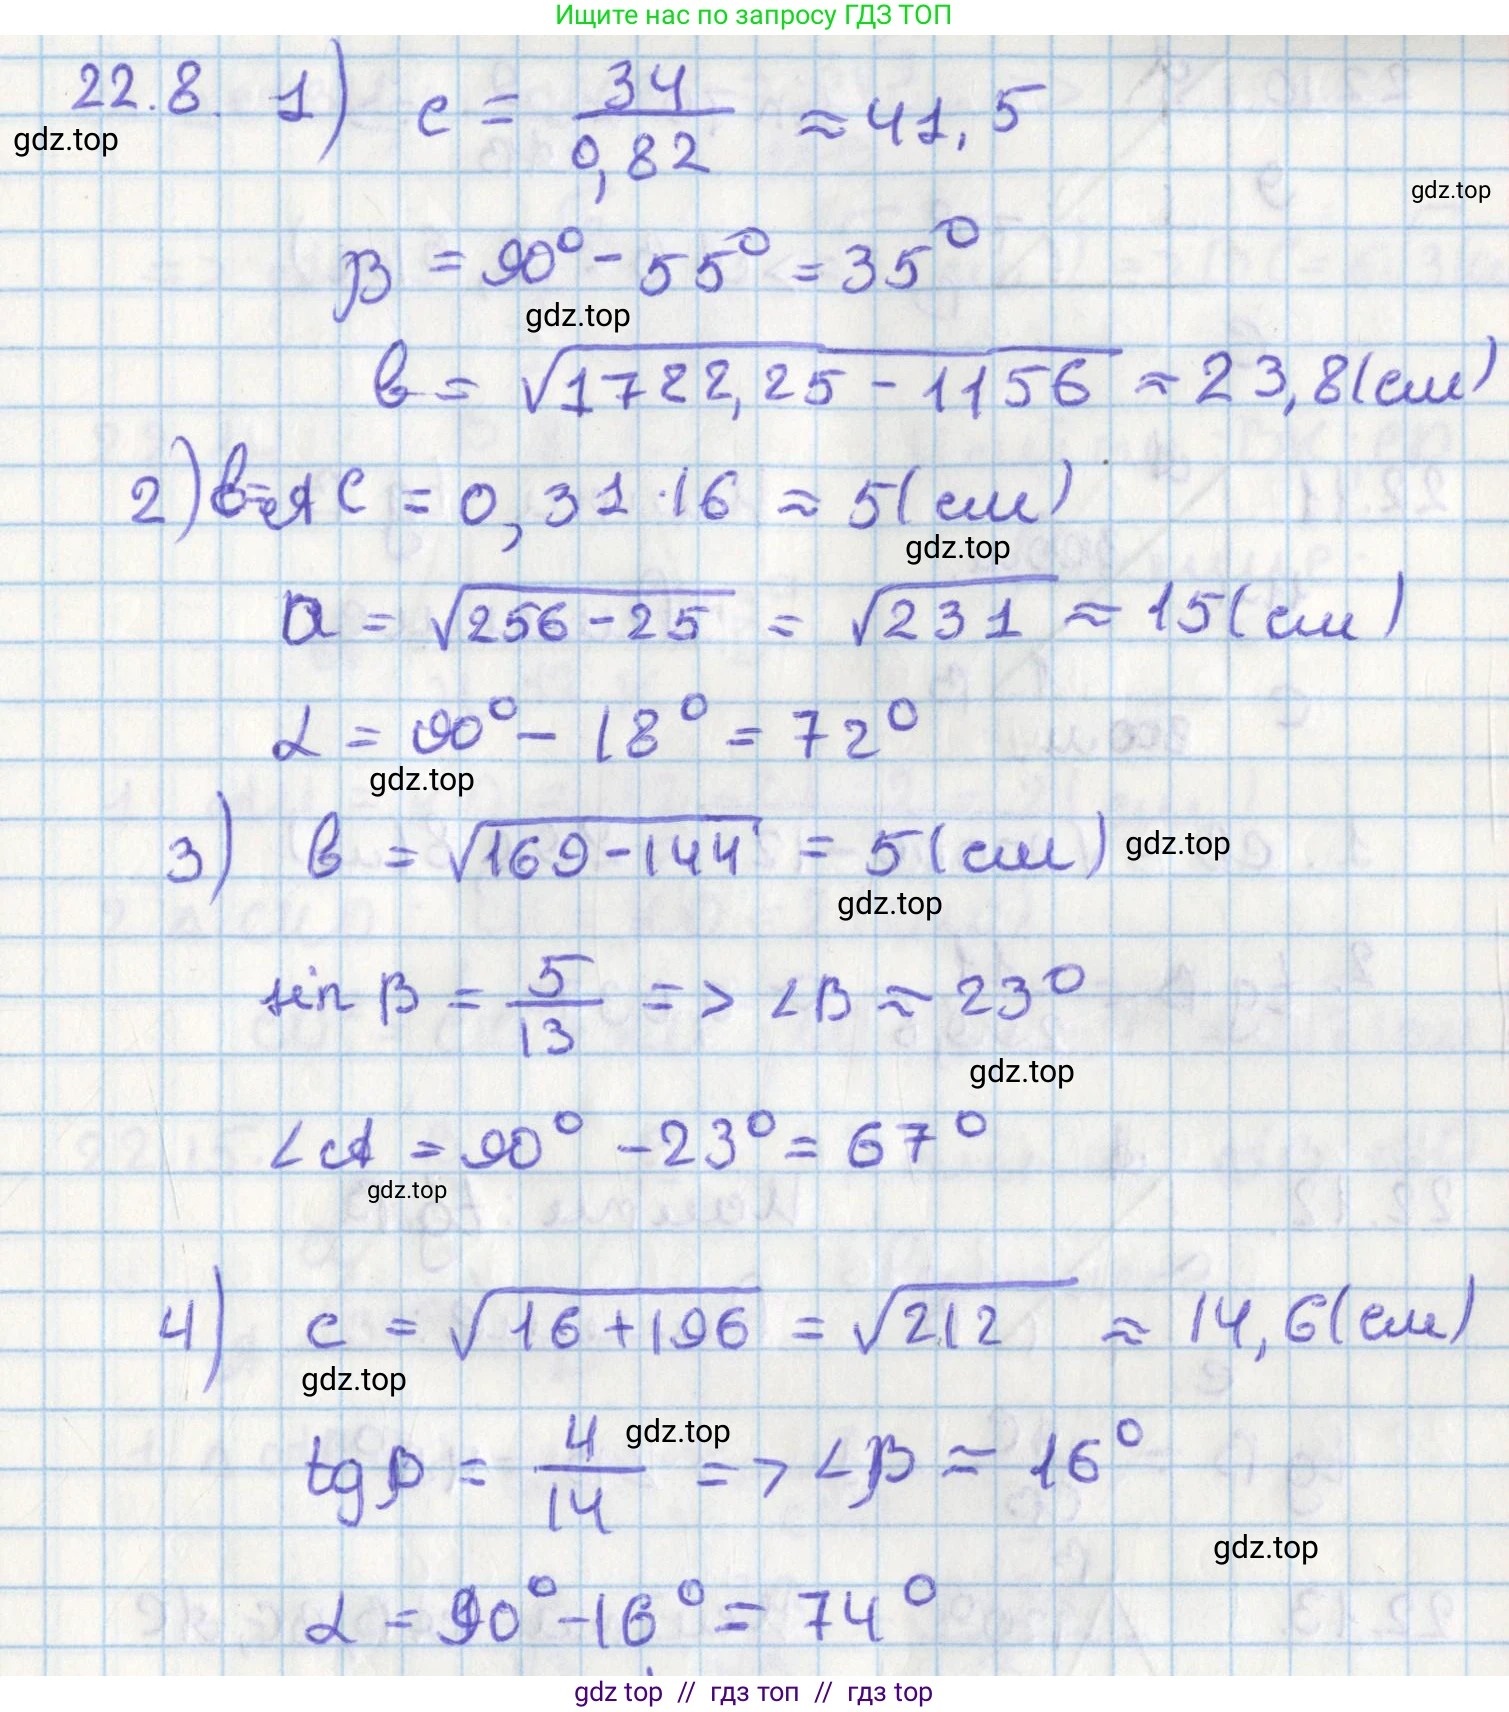 Ищите нас по запросу ГДЗ ТОП
22.8. 1) c = 34/0,82 ≈ 41,5
gdz.top
gdz.top
β = 90° - 55° = 35°
gdz.top
в = √(1722,25 - 1156) ≈ 23,8(см)
2) в=АС = 0,31·16 ≈ 5(см)
gdz.top
a = √(256-25) = √231 ≈ 15(см)
α = 90° - 18° = 72°
gdz.top
3) в = √(169-144) = 5(см) gdz.top
gdz.top
sin β = 5/13 => ∠B ≈ 23°
gdz.top
∠A = 90° - 23° = 67°
gdz.top
4) c = √(16+196) = √212 ≈ 14,6(см)
gdz.top
tg β = 4/14 gdz.top => ∠β ≈ 16°
gdz.top
α = 90° - 16° = 74°
gdz top // гдз топ // гдз top